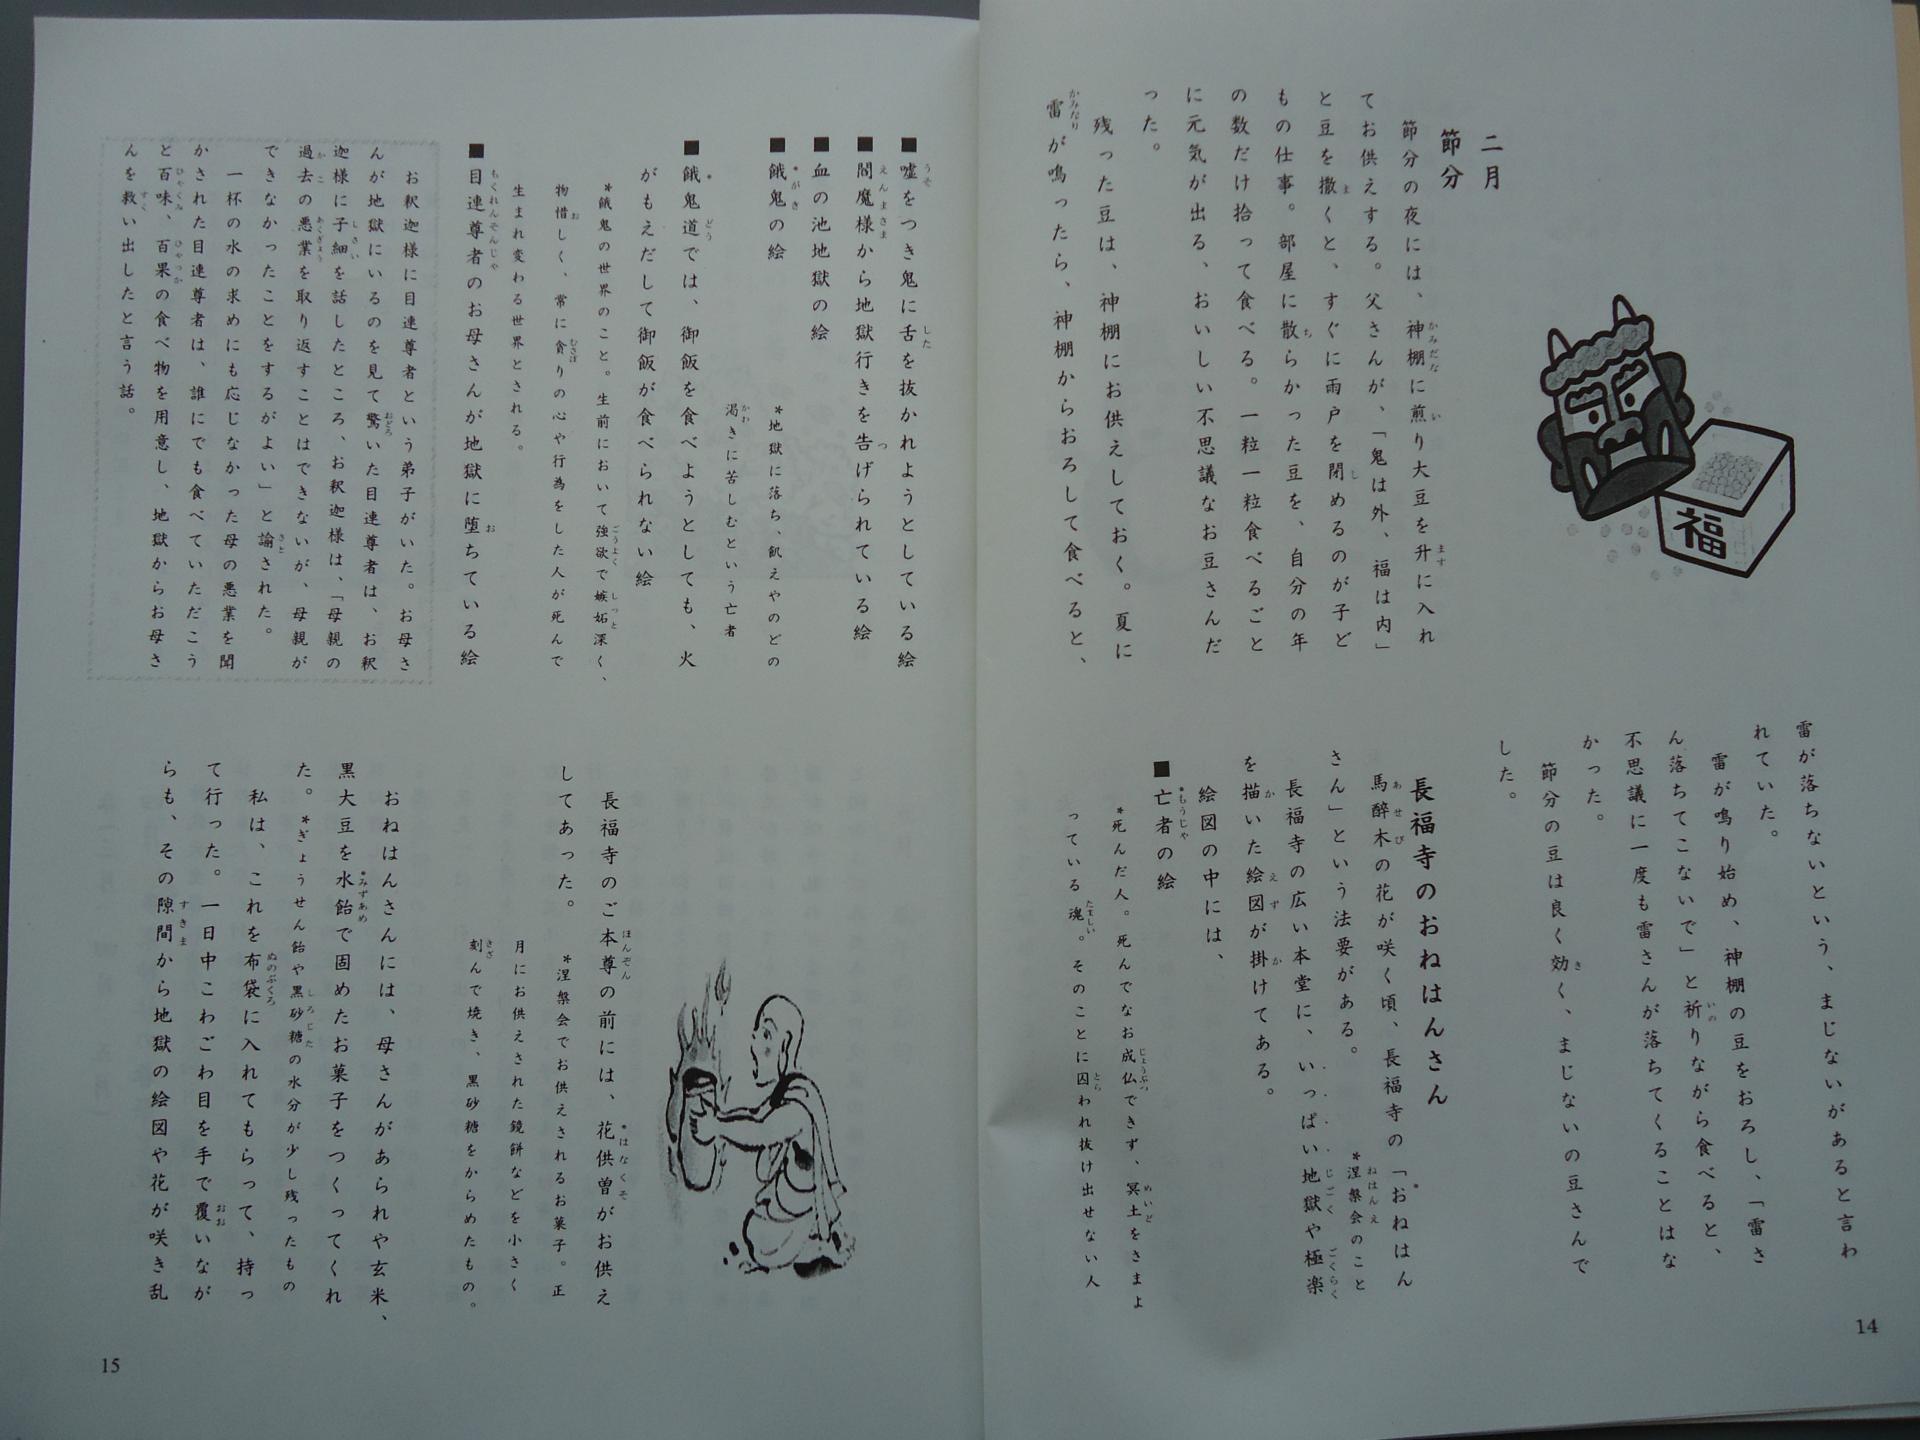 二月
節分
節分の夜には、神棚に煎り大豆を升に入れ
てお供えする。父さんが、「鬼は外、福は内」
と豆を撒くと、すぐに雨戸を閉めるのが子ど
もの仕事。部屋に散らかった豆を、自分の年
の数だけ拾って食べる。一粒一粒食べるごと
に元気が出る、おいしい不思議なお豆さんだ
った。
残った豆は、神棚にお供えしておく。夏に
雷が鳴ったら、神棚からおろして食べると、
福
雷が落ちないという、まじないがあると言わ
れていた。
雷が鳴り始め、神棚の豆をおろし、「雷さ
ん落ちてこないで」と祈りながら食べると、
不思議に一度も雷さんが落ちてくることはな
かった。
節分の豆は良く効く、まじないの豆さんで
した。
長福寺のおねはんさん
馬酔木の花が咲く頃、長福寺の「おねはん
*涅槃会のこと
さん」という法要がある。
長福寺の広い本堂に、いっぱい地獄や極楽
を描いた絵図が掛けてある。
絵図の中には、
■亡者の絵
*死んだ人。死んでなお成仏できず、冥土をさまよ
っている魂。そのことに囚われ抜け出せない人
14
■嘘をつき鬼に舌を抜かれようとしている絵
■閻魔様から地獄行きを告げられている絵
■血の池地獄の絵
■餓鬼の絵
*地獄に落ち、飢えやのどの
渇きに苦しむという亡者
■餓鬼道では、御飯を食べようとしても、火
がもえだして御飯が食べられない絵
*餓鬼の世界のこと。生前において強欲で嫉妬深く、
物惜しく、常に貪りの心や行為をした人が死んで
生まれ変わる世界とされる。
■目連尊者のお母さんが地獄に堕ちている絵
お釈迦様に目連尊者という弟子がいた。お母さ
んが地獄にいるのを見て驚いた目連尊者は、お釈
迦様に子細を話したところ、お釈迦様は、「母親の
過去の悪業を取り返すことはできないが、母親が
できなかったことをするがよい」と諭された。
一杯の水の求めにも応じなかった母の悪業を聞
かされた目連尊者は、誰にでも食べていただこう
と百味、百果の食べ物を用意し、地獄からお母さ
んを救い出したと言う話。
長福寺のご本尊の前には、花供曽がお供え
してあった。
*涅槃会でお供えされるお菓子。正
月にお供えされた鏡餅などを小さく
刻んで焼き、黒砂糖をからめたもの。
おねはんさんには、母さんがあられや玄米、
黒大豆を水飴で固めたお菓子をつくってくれ
た。*ぎょうせん飴や黒砂糖の水分が少し残ったもの
私は、これを布袋に入れてもらって、持っ
て行った。一日中こわごわ目を手で覆いなが
らも、その隙間から地獄の絵図や花が咲き乱
15